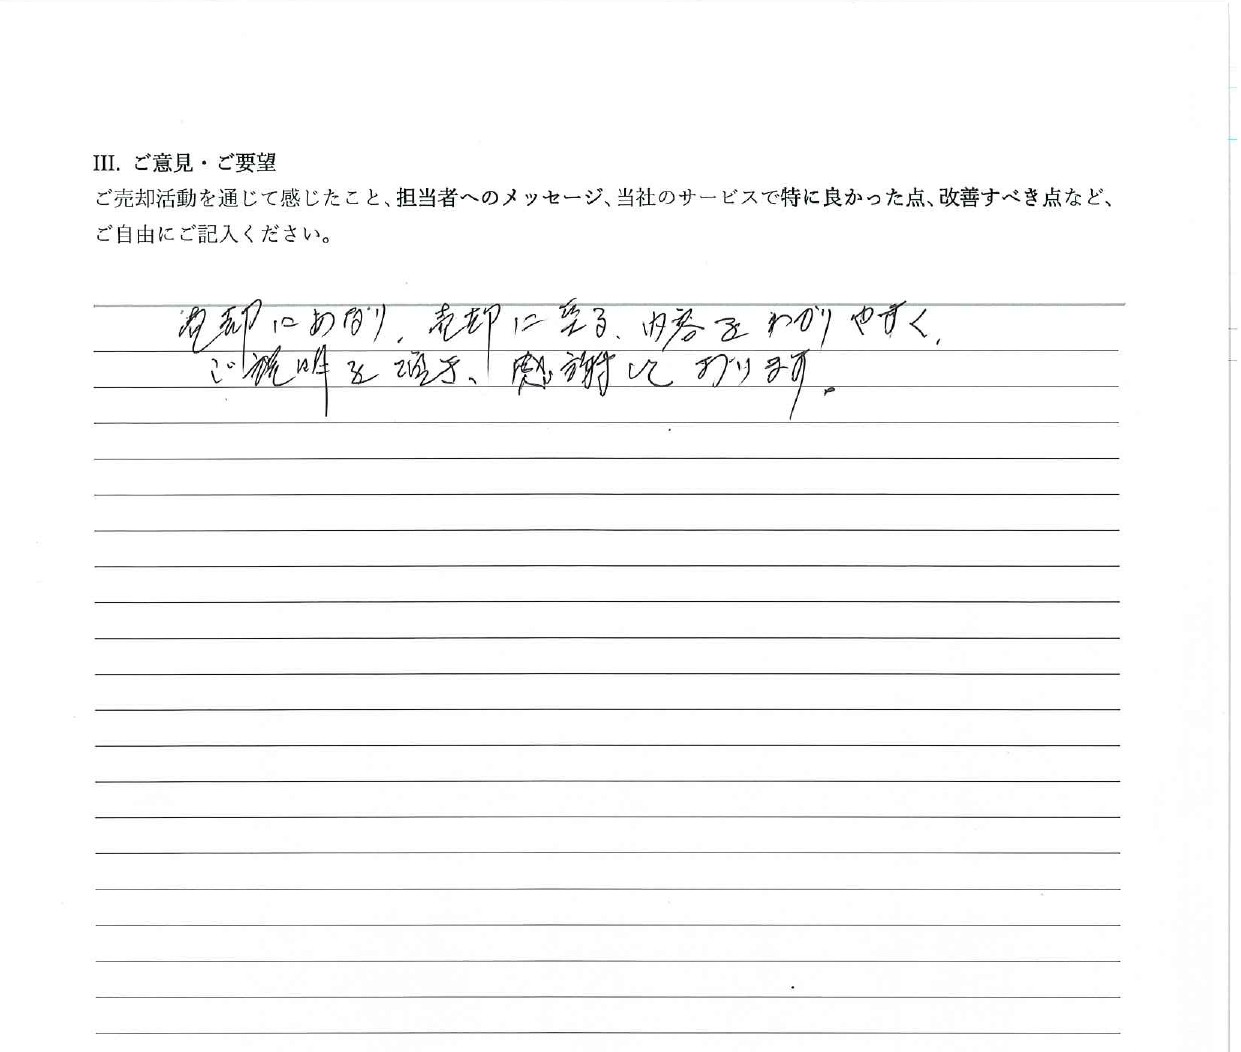 III. ご意見・ご要望
ご売却活動を通じて感じたこと、担当者へのメッセージ、当社のサービスで特に良かった点、改善すべき点など、
ご自由にご記入ください。
売却にあたり、売却に至る、内容をわかりやすく、
ご説明を頂き、感謝しております。